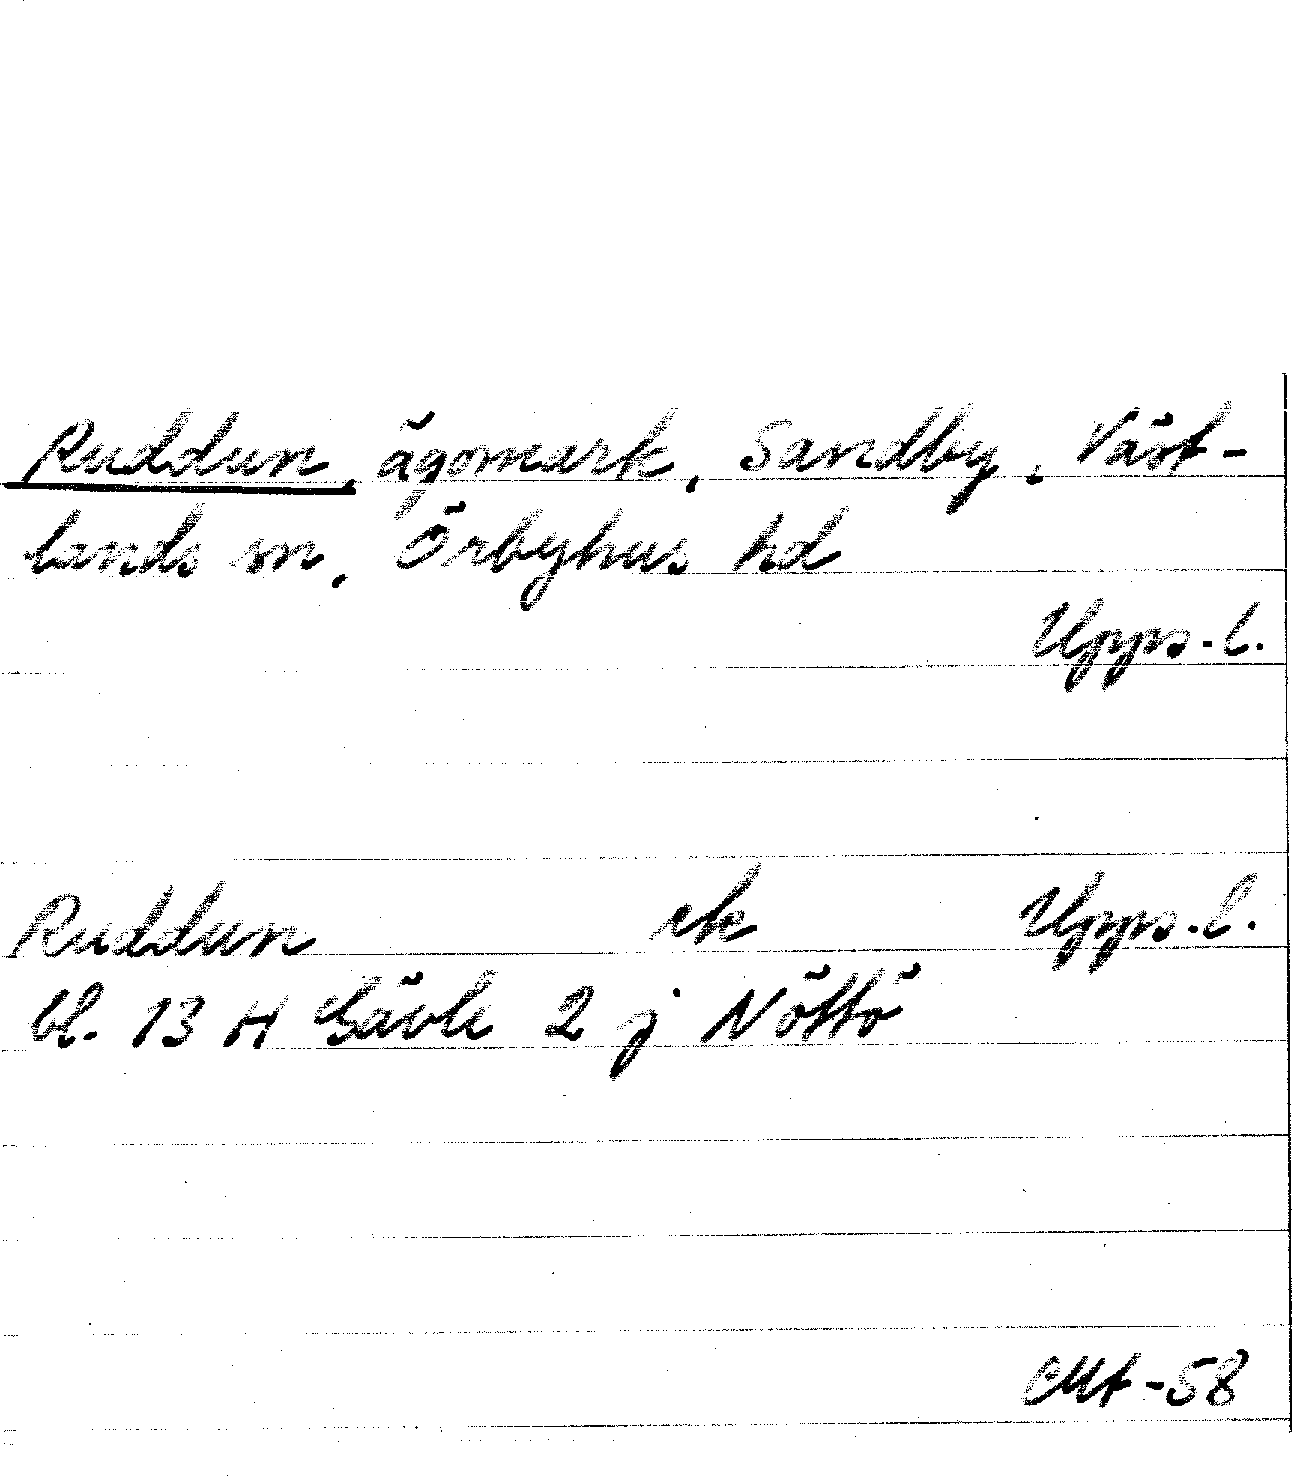 Ruddun, ägomark, Sandby, Väst-
lands sn, Örbyhus hd
Upps.l.
Ruddun ek Upps.l.
bl. 13 H Gävle 2 j Nöttö
-58